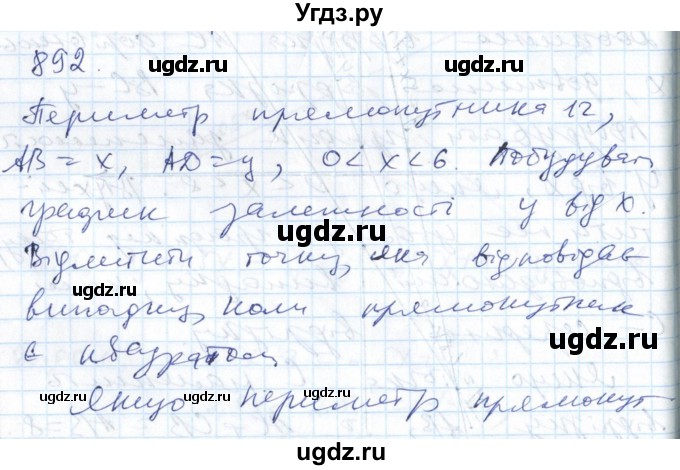 Угдз.ру
892.
Периметр прямокутника 12,
ugdz.ru ugdz.ru
AB = x, AD = y, 0 < x < 6. Побудувати
графік залежності y від x.
ugdz.ru
Відмітити точку, яка відповідає
ugdz.ru
випадку, коли прямокутник
ugdz.ru
є квадратом.
ugdz.ru ugdz.ru
Якщо периметр прямокут
ugdz.ru